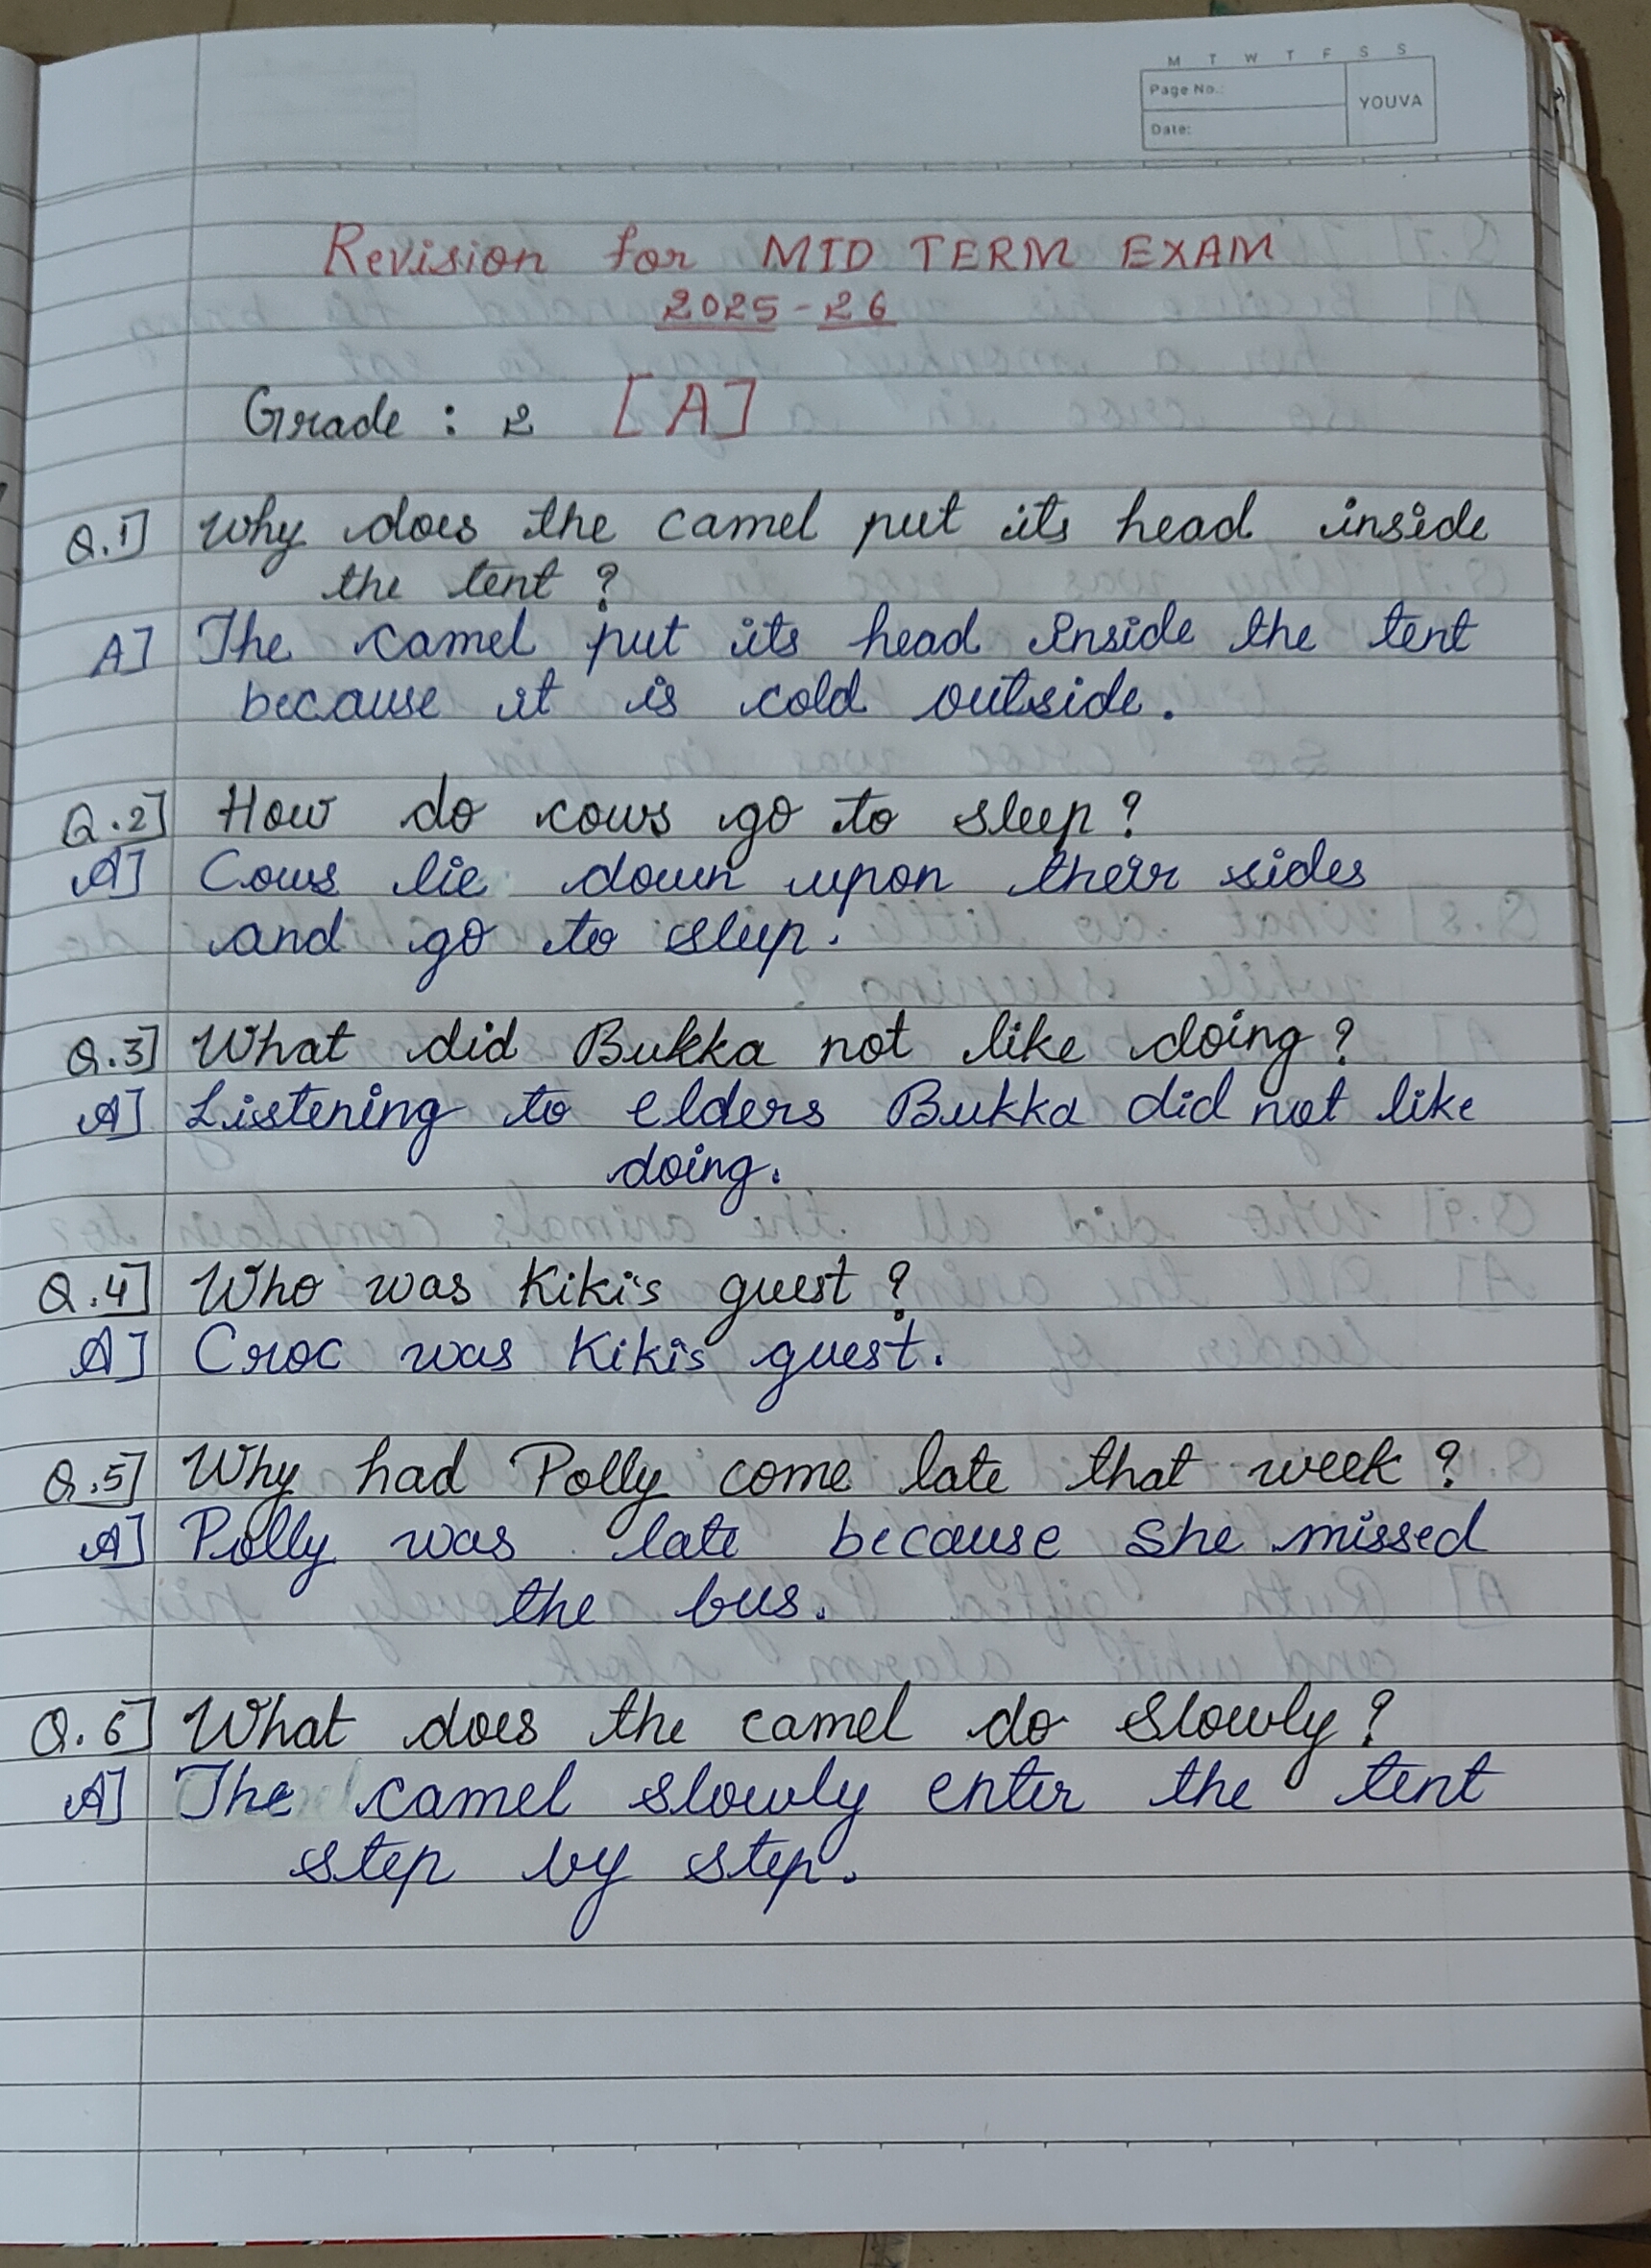 M T W T F S S
Page No.:
YOUVA
Date:
Revision for MID TERM EXAM
2025-26
Grade : 2 [A]
Q.1] Why does the camel put its head inside
the tent ?
A] The camel put its head inside the tent
because it is cold outside.
Q.2] How do cows go to sleep?
A] Cows lie down upon their sides
and go to sleep.
Q.3] What did Bukka not like doing?
A] Listening to elders Bukka did not like
doing.
Q.4] Who was Kiki's guest?
A] Croc was Kiki's guest.
Q.5] Why had Polly come late that week?
A] Polly was late because she missed
the bus.
Q.6] What does the camel do slowly?
A] The camel slowly enter the tent
step by step.